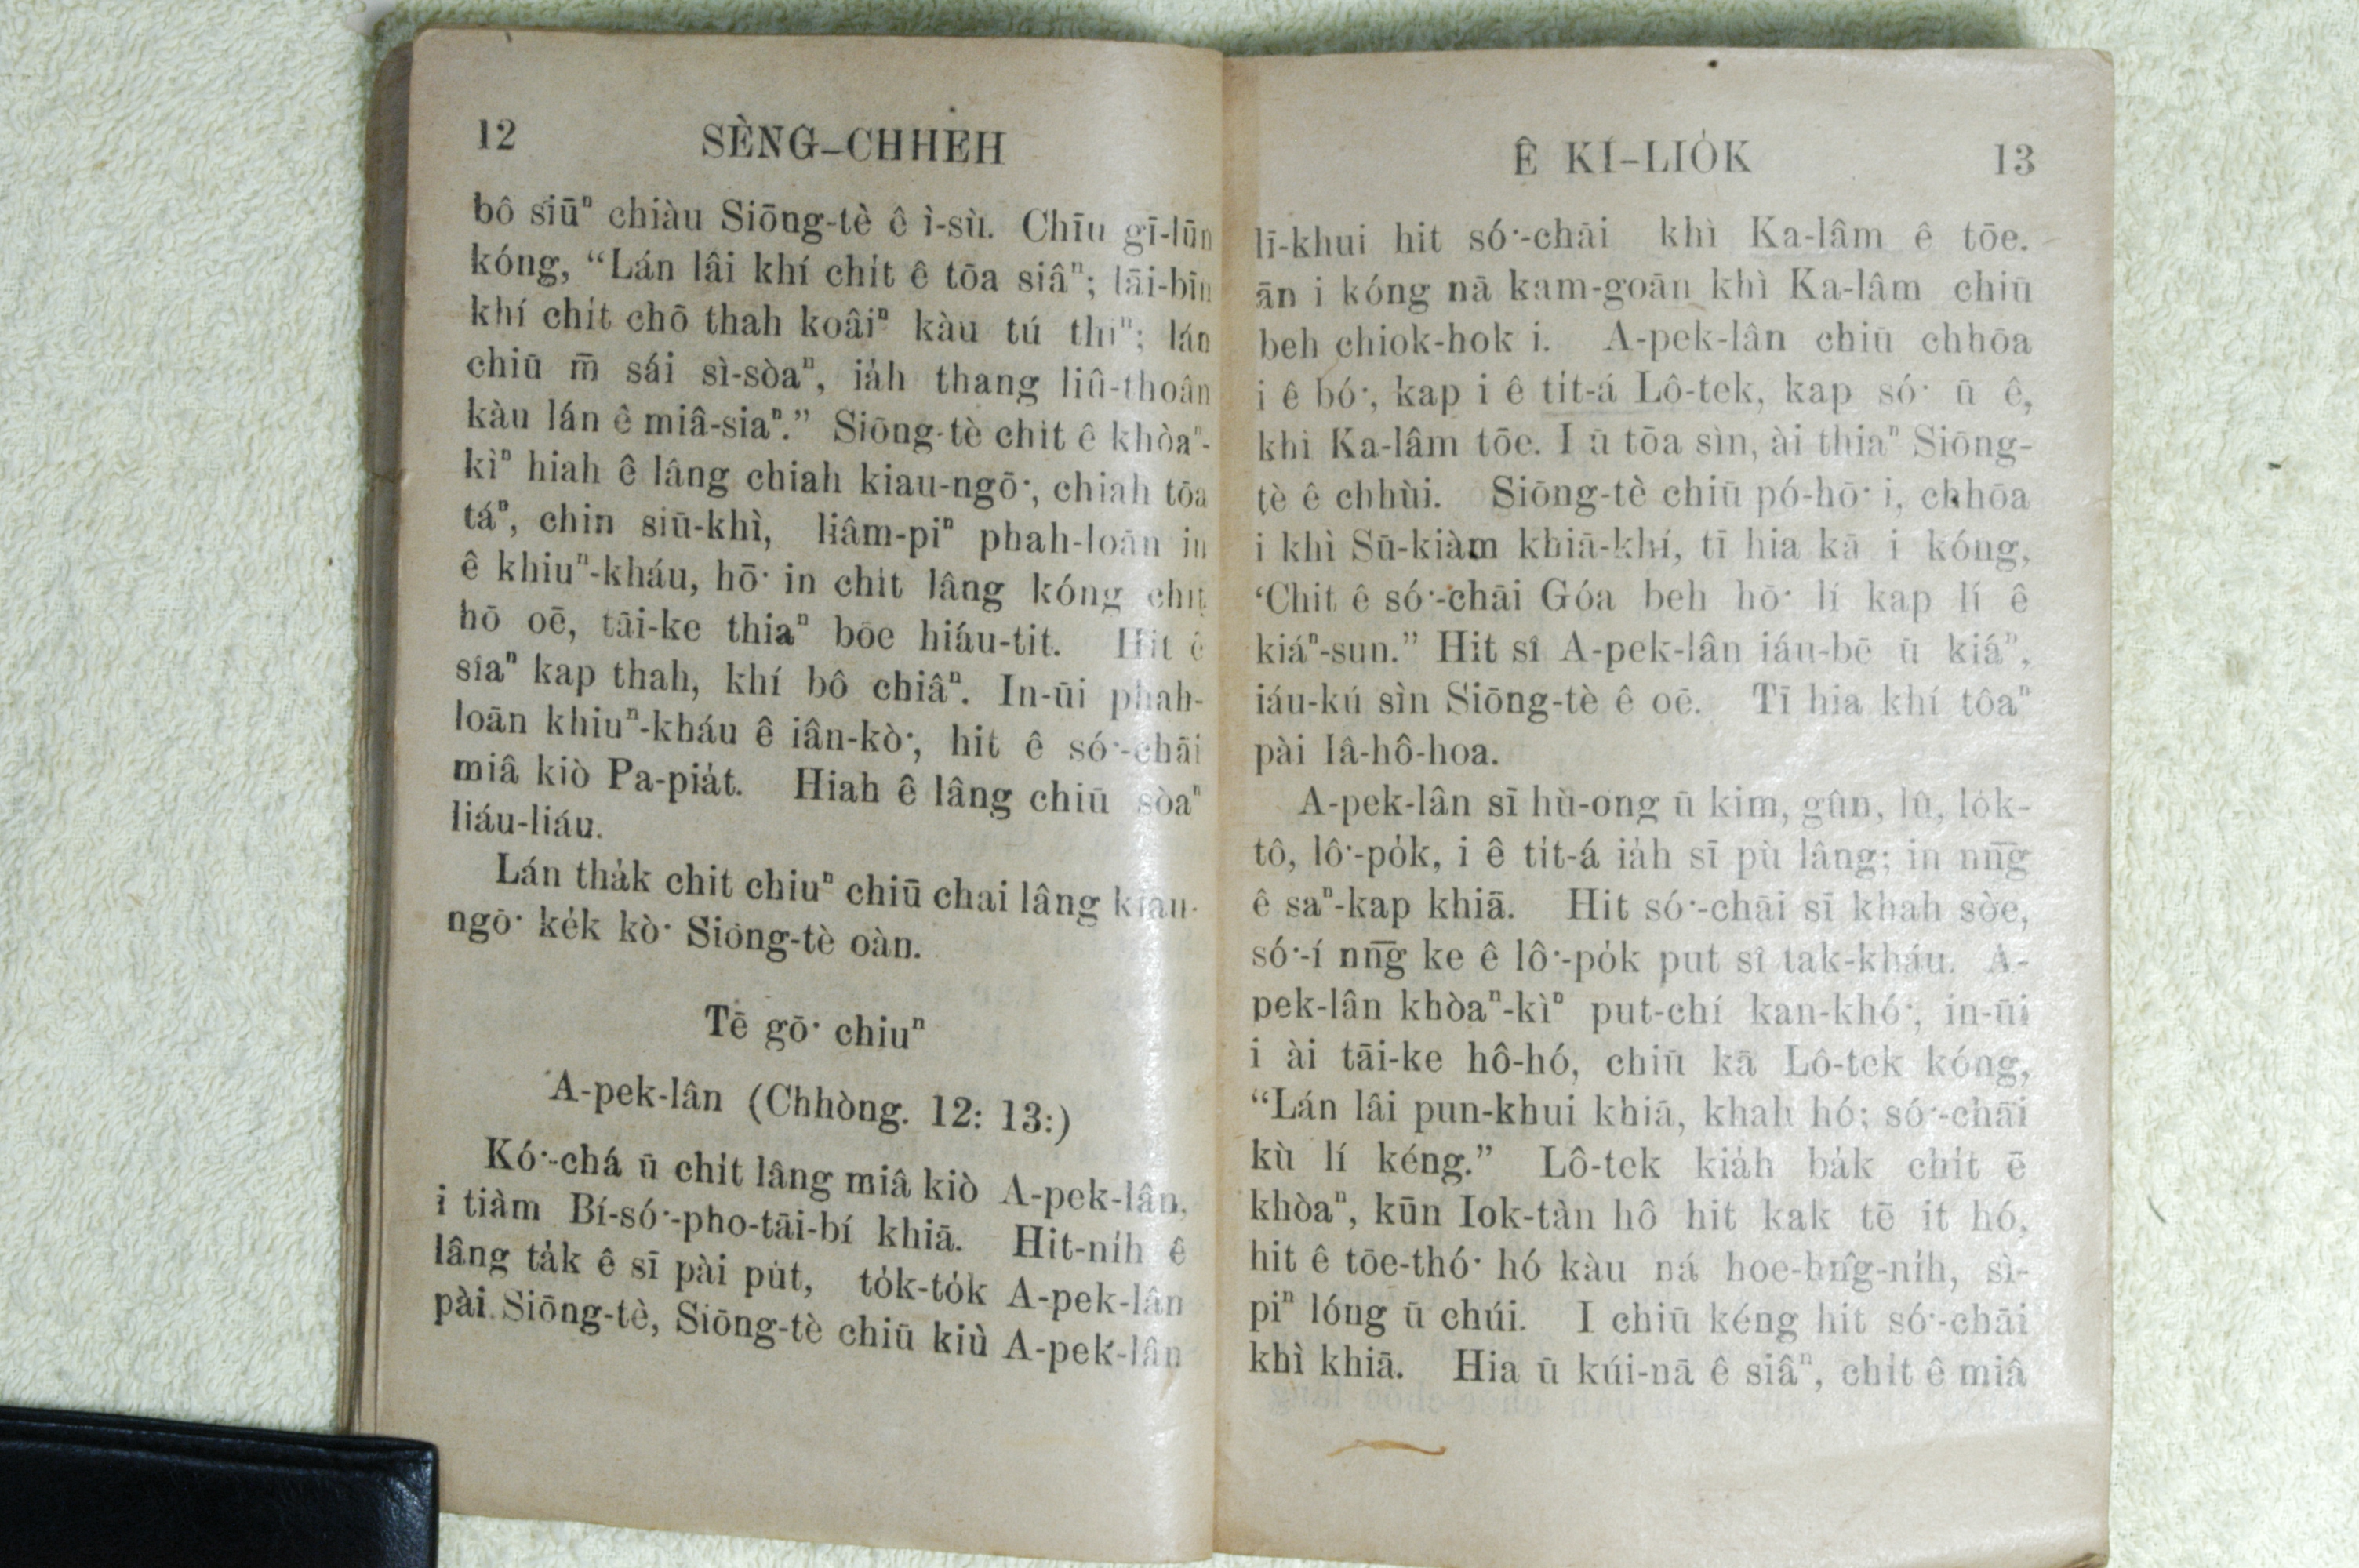 12 SÈNG-CHHEH
bô siūⁿ chiàu Siōng-tè ê ì-sù. Chīu gī-lūn
kóng, “Lán lâi khí chi̍t ê tōa siâⁿ; lāi-bīn
khí chi̍t chō thah koâiⁿ kàu tú thiⁿ; lán
chiū m̄ sái sì-sòaⁿ, ia̍h thang liû-thoân
kàu lán ê miâ-siaⁿ.” Siōng-tè chit ê khòaⁿ-
kìⁿ hiah ê lâng chiah kiau-ngō͘, chiah tōa
táⁿ, chin siū-khì, liâm-piⁿ phah-loān in
ê khiuⁿ-kháu, hō͘ in chi̍t lâng kóng chi̍t
hō oē, tāi-ke thiaⁿ bōe hiáu-tit. Hit ê
sîaⁿ kap thah, khí bô chiâⁿ. In-ūi phah-
loān khiuⁿ-kháu ê iân-kò͘, hit ê só͘-chāi
miâ kiò Pa-pia̍t. Hiah ê lâng chiū sòaⁿ
liáu-liáu.
Lán tha̍k chit chiuⁿ chiū chai lâng kiau-
ngō͘ ke̍k kò͘ Siōng-tè oàn.
Tē gō͘ chiuⁿ
A-pek-lân (Chhòng. 12: 13:)
Kó͘-chá ū chi̍t lâng miâ kiò A-pek-lân,
i tiàm Bí-só͘-pho-tāi-bí khiā. Hit-ni̍h ê
lâng ta̍k ê sī pài pu̍t, to̍k-to̍k A-pek-lân
pài Siōng-tè, Siōng-tè chiū kiù A-pek-lân
Ê KÍ-LIO̍K 13
lī-khui hit só͘-chāi khì Ka-lâm ê tōe.
ān i kóng nā kam-goān khì Ka-lâm chiū
beh chiok-hok i. A-pek-lân chiū chhōa
i ê bó͘, kap i ê ti̍t-á Lô-tek, kap só͘ ū ê,
khì Ka-lâm tōe. I ū tōa sìn, ài thiaⁿ Siōng-
tè ê chhùi. Siōng-tè chiū pó-hō͘ i, chhōa
i khì Sū-kiàm khiā-khí, tī hia kā i kóng,
‘Chit ê só͘-chāi Góa beh hō͘ lí kap lí ê
kiáⁿ-sun.” Hit sî A-pek-lân iáu-bē ū kiáⁿ,
iáu-kú sìn Siōng-tè ê oē. Tī hia khí tôaⁿ
pài Iâ-hô-hoa.
A-pek-lân sī hù-ong ū kim, gûn, lû, lo̍k-
tô, lô͘-po̍k, i ê ti̍t-á ia̍h sī pù lâng; in nn̄g
ê saⁿ-kap khiā. Hit só͘-chāi sī khah sòe,
só͘-í nn̄g ke ê lô͘-po̍k put sî tak-kháu. A-
pek-lân khòaⁿ-kìⁿ put-chí kan-khó͘, in-ūi
i ài tāi-ke hô-hó, chiū kā Lô-tek kóng,
“Lán lâi pun-khui khiā, khah hó; só͘-chāi
kù lí kéng.” Lô-tek kia̍h ba̍k chi̍t ē
khòaⁿ, kūn Iok-tàn hô hit kak tē it hó,
hit ê tōe-thó͘ hó kàu ná hoe-hn̂g-ni̍h, sì-
piⁿ lóng ū chúi. I chiū kéng hit só͘-chāi
khì khiā. Hia ū kúi-nā ê siâⁿ, chi̍t ê miâ